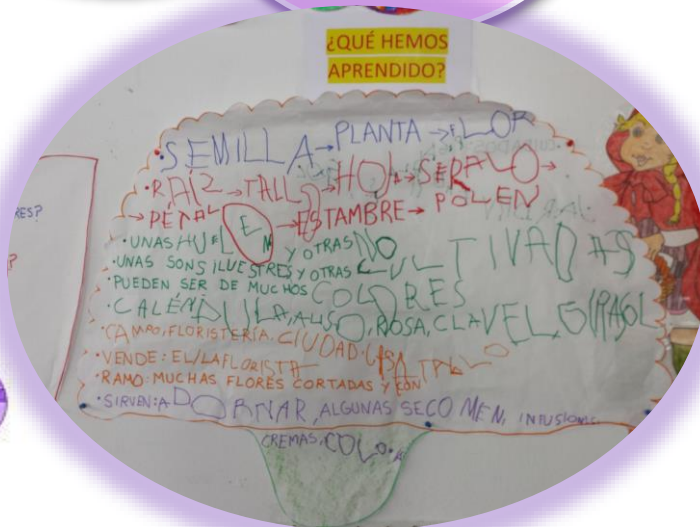 ¿QUÉ HEMOS
APRENDIDO?
SEMILLA→PLANTA→FLOR
·RAÍZ→TALLO→HOJA→SÉPALO→
→PÉTALO→ESTAMBRE→POLEN
·UNAS HUELEN Y OTRAS NO
·UNAS SON SILVESTRES Y OTRAS CULTIVADAS
·PUEDEN SER DE MUCHOS COLORES
·CALÉNDULA, ALISO, ROSA, CLAVEL, GIRASOL
·CAMPO, FLORISTERÍA, CIUDAD, CASA
·VENDE: EL/LA FLORISTA
·RAMO: MUCHAS FLORES CORTADAS Y CON TALLO
·SIRVEN: ADORNAR, ALGUNAS SE COMEN, INFUSIONES
CREMAS,
RES?